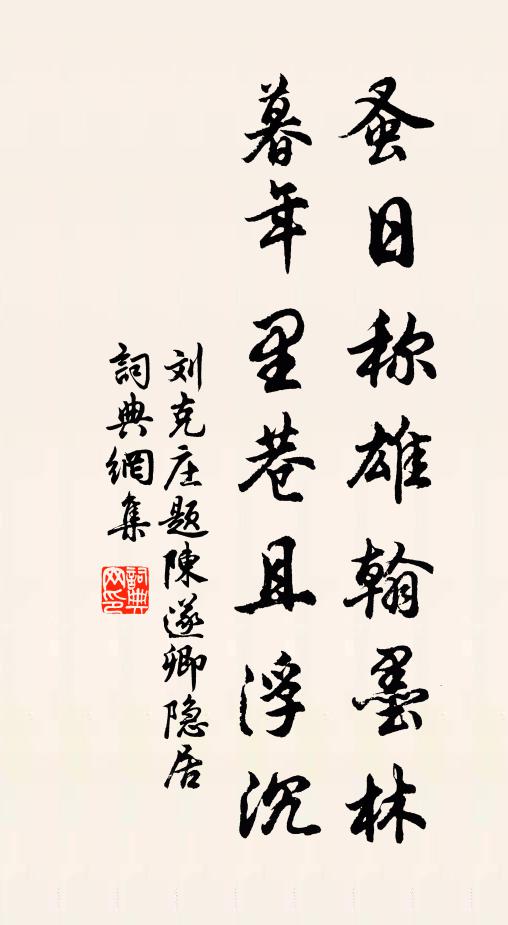 蚤日称雄翰墨林
暮年里巷且浮沉
刘克庄题陳遂卿隐居
詞典網集
詞典網印